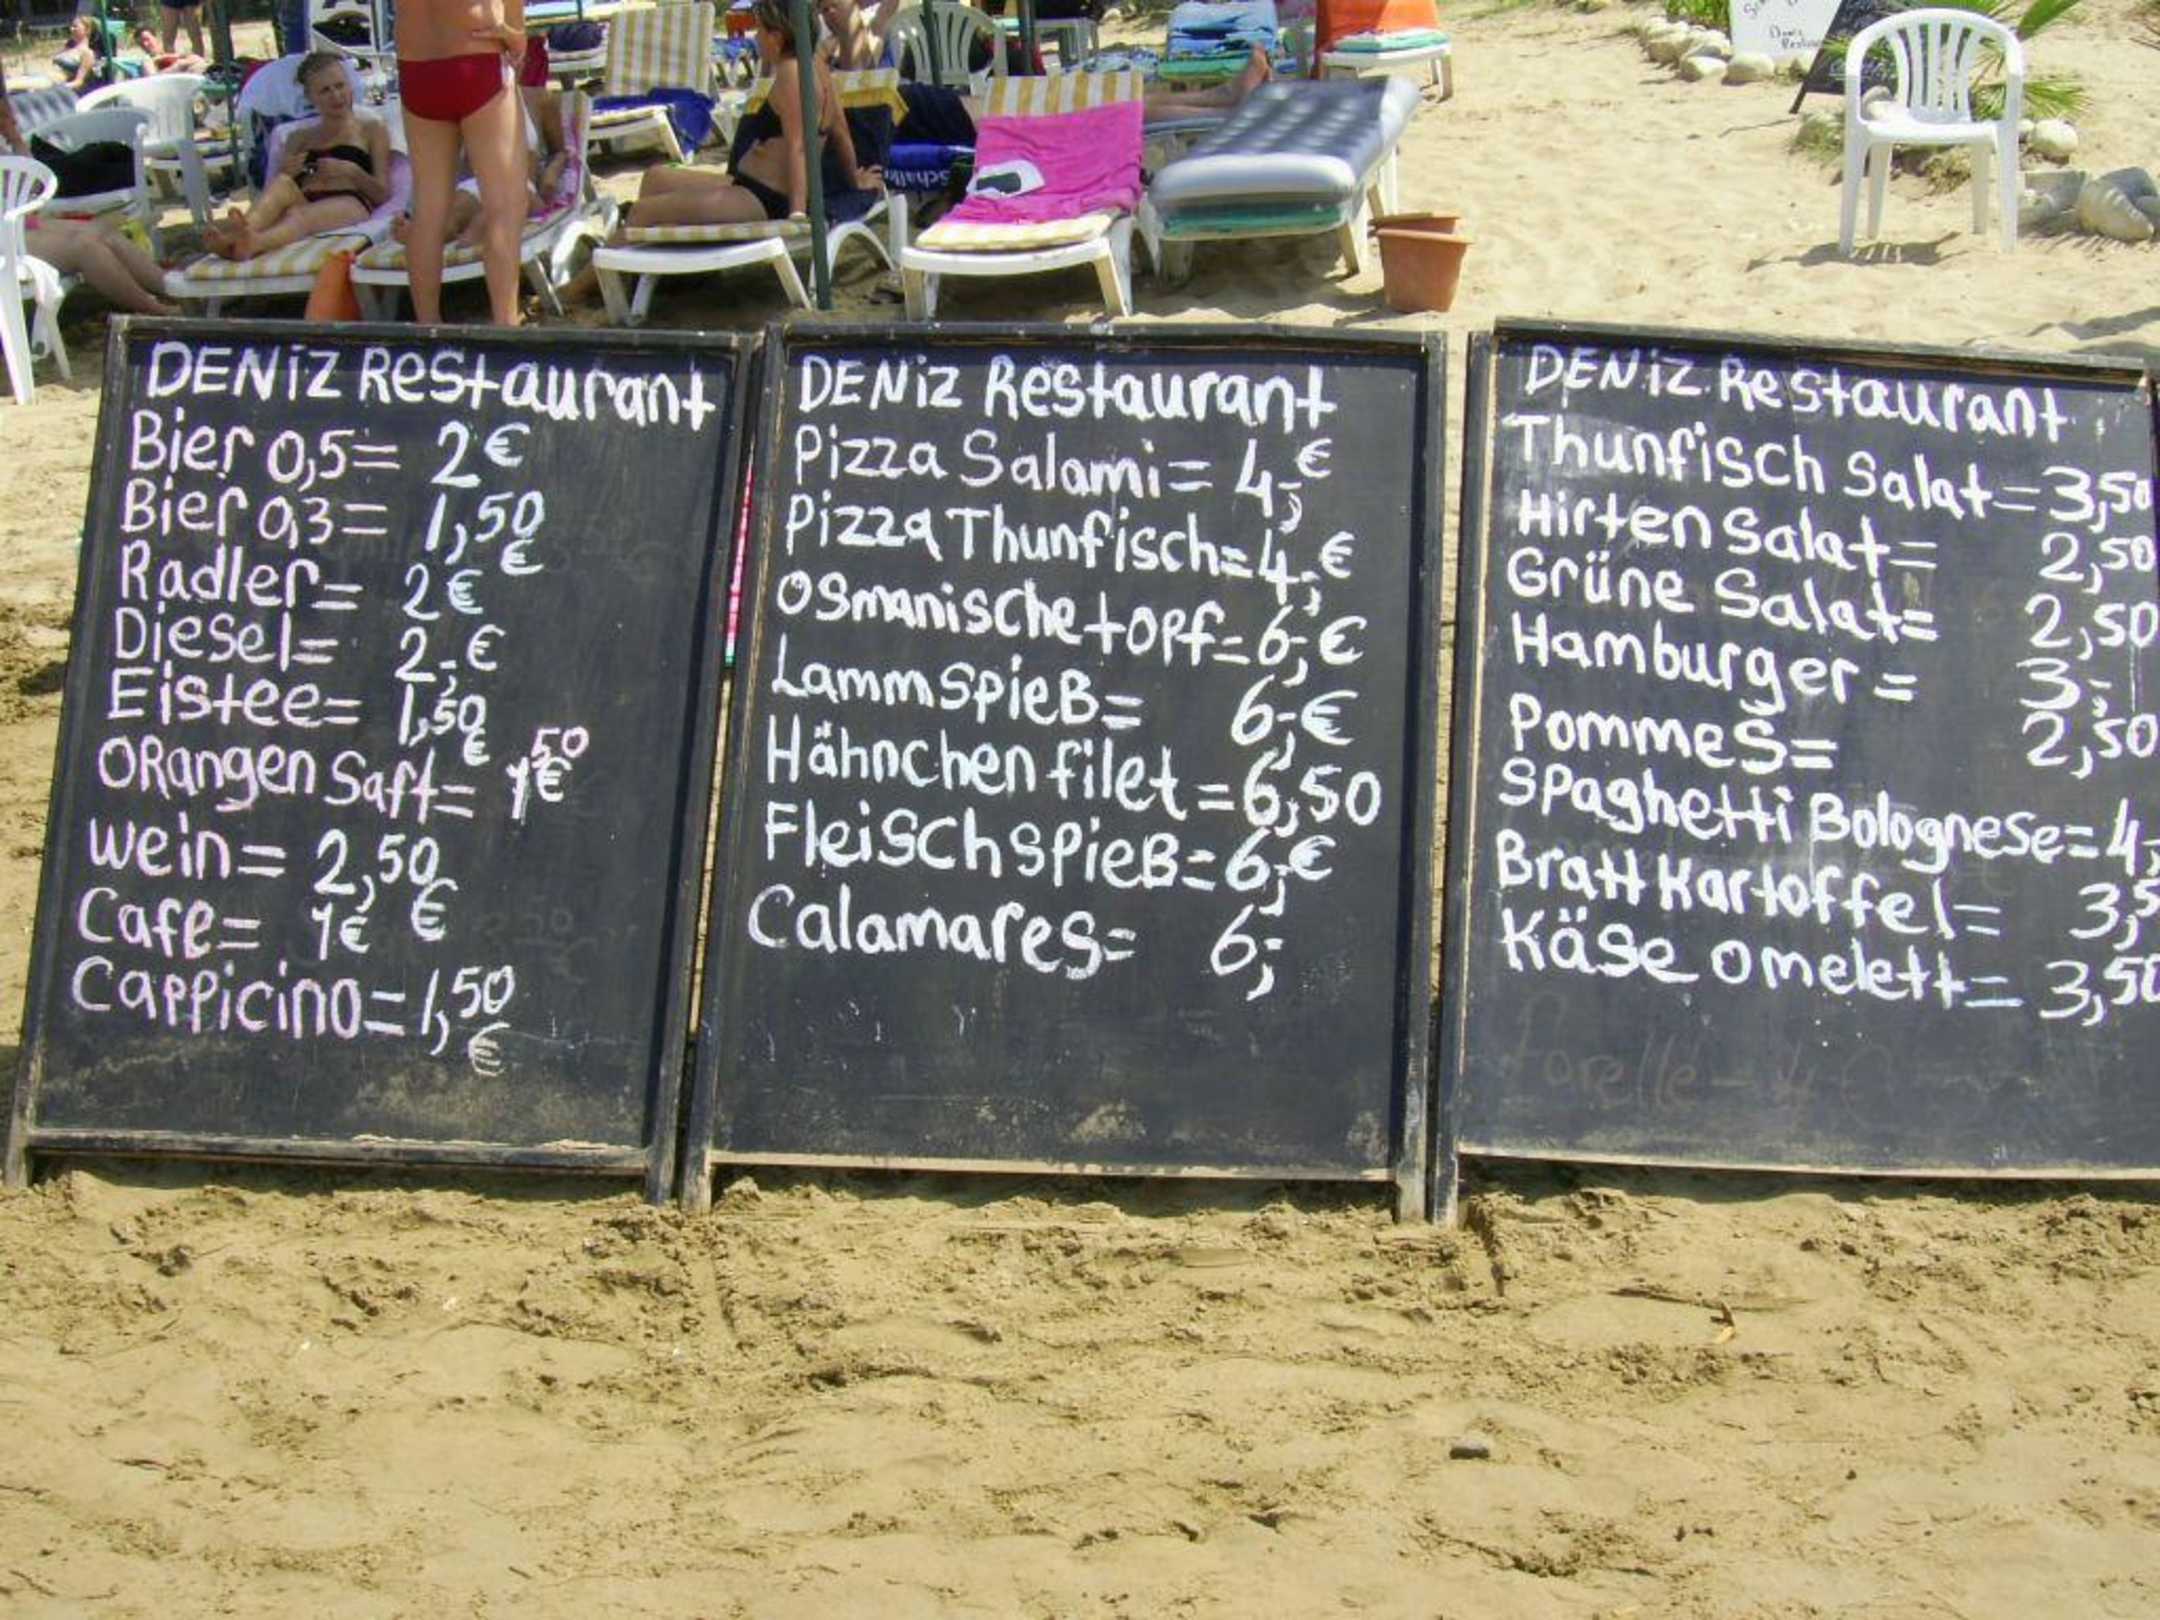 DENiZ Restaurant
Bier 0,5= 2€
Bier 0,3= 1,50 €
Radler= 2€
Diesel= 2,-€
Eistee= 1,50 €
ORangen Saft= 1 50 €
wein= 2,50 €
Cafe= 1€
Cappicino=1,50 €
DENiZ Restaurant
Pizza Salami= 4,-€
Pizza Thunfisch=4,-€
Osmanische topf=6,-€
Lammspieß= 6,-€
Hähnchen filet=6,50
Fleisch spieß=6,-€
Calamares= 6,-
DENiZ Restaurant
Thunfisch Salat=3,50
Hirten Salat= 2,50
Grüne Salat= 2,50
Hamburger= 3,-
Pommes= 2,50
Spaghetti Bolognese=4,-
Bratt Kartoffel= 3,5
Käse omelett= 3,50
forelle
Schal